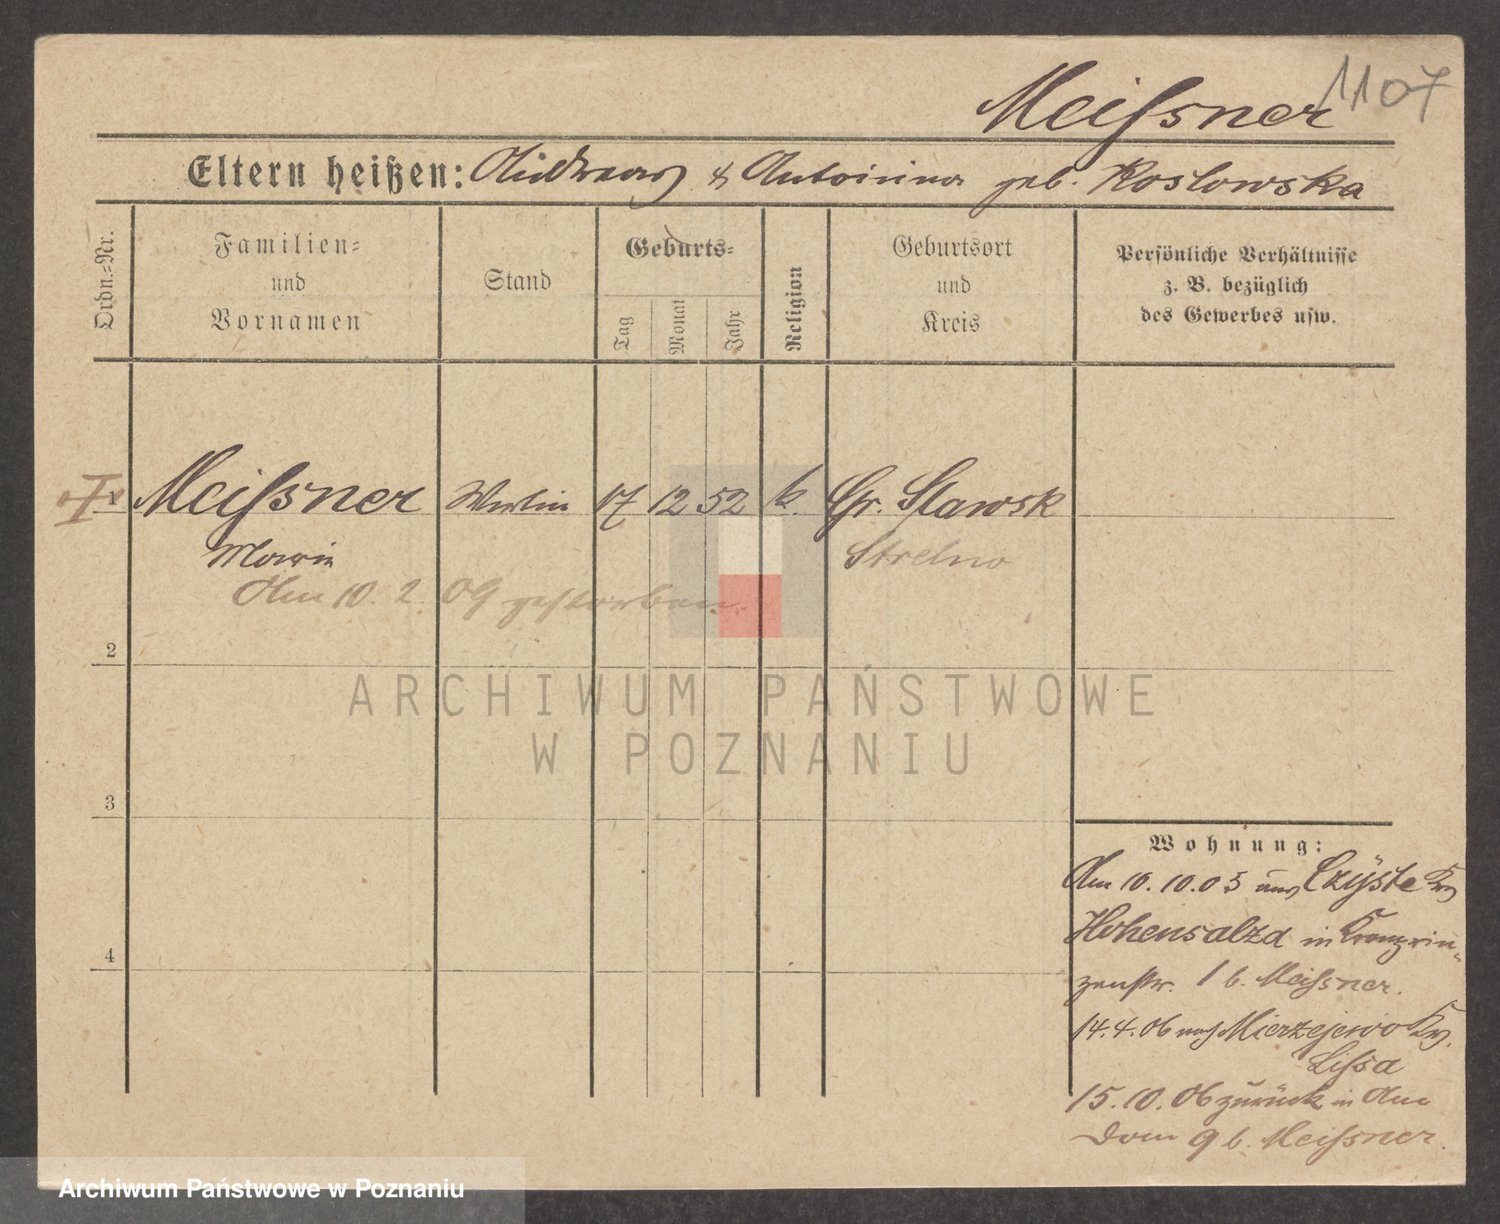 Meißner 1107
Eltern heißen: Andreas & Antonina geb. Koslowska
Ordn.-Nr.
Familien-
und
Vornamen
Stand
Geburts-
Tag
Monat
Jahr
Religion
Geburtsort
und
Kreis
Persönliche Verhältnisse
z. B. bezüglich
des Gewerbes usw.
Meißner 17 12 52 k. Gr. Slawsk
Maria Strelno
Am 10. 2. 09 gestorben.
2
ARCHIWUM PAŃSTWOWE
W POZNANIU
3
4
Wohnung:
Am 10. 10. 05 aus Czyste Krs
Hohensalza in Kronprin-
zenstr. 1 b. Meißner.
14. 4. 06 nach Mierzejewo Krs.
Lissa
15. 10. 06 zurück in Am
Dom 9 b. Meißner.
Archiwum Państwowe w Poznaniu